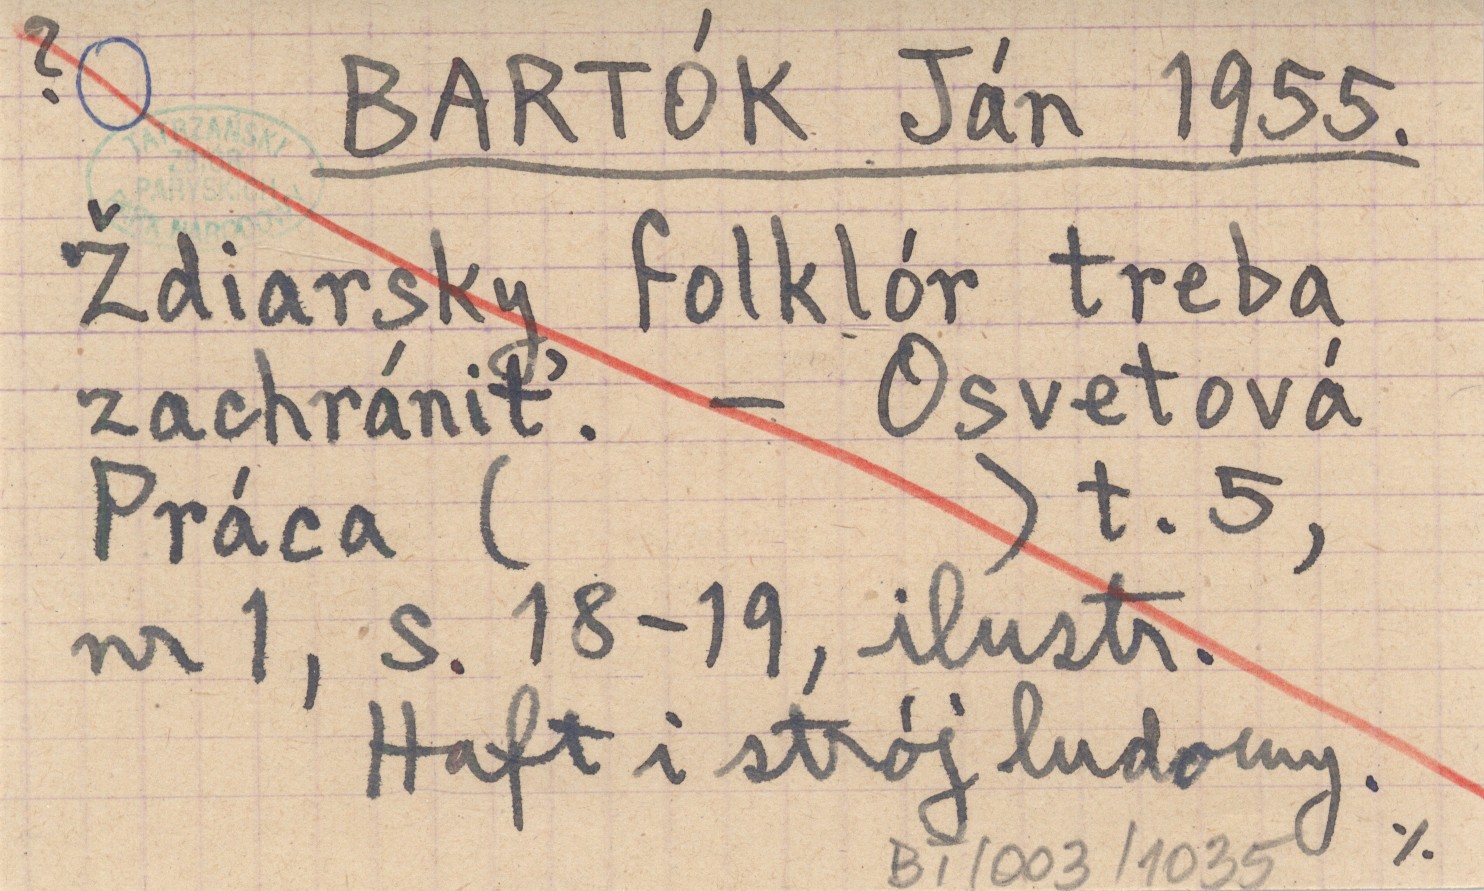 ?
BARTÓK Ján 1955.
TATRZAŃSKI
PARYSKICH
Ždiarsky folklór treba
zachrániť. – Osvetová
Práca ( ) t. 5,
nr 1, s. 18-19, ilustr.
Haft i strój ludowy.
BI/003/1035
./.